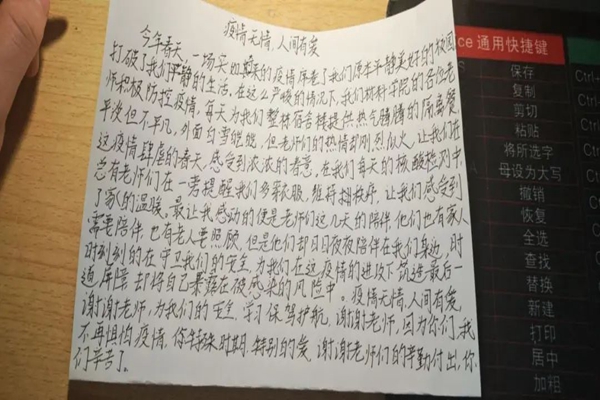 疫情无情,人间有爱
今年春天,一场突如其来的疫情席卷了我们原本平静美好的校园
打破了我们平静的生活,在这么严峻的情况下,我们材料学院的各位老
师积极防控疫情,每天为我们整栋宿舍楼提供热气腾腾的隔离餐
平淡但不平凡,外面白雪皑皑,但老师们的热情却刚烈似火,让我们在
这疫情肆虐的春天,感受到浓浓的春意,在我们每天的核酸检测中
总有老师们在一旁提醒我们多穿衣服,维持排秩序,让我们感受到
了家的温暖。最让我感动的便是老师们这几天的陪伴,他们也有家人
需要陪伴,也有老人要照顾,但是他们却日日夜夜陪伴在我们身边,时
时刻刻的在守卫我们的安全,为我们在这疫情的进攻下筑造最后一
通屏障,却将自己暴露在被感染的风险中。疫情无情,人间有爱,
谢谢老师,为我们的安全,学习保驾护航,谢谢老师,因为你们,我们
不再惧怕疫情,你特殊时期,特别的爱,谢谢老师们的辛勤付出,你
们辛苦了。
ce通用快捷键
保存
Ctrl+
复制
Ctrl
剪切
粘贴
将所选字
母设为大写
撤销
恢复
全选
查找
替换
新建
打印
居中
加粗